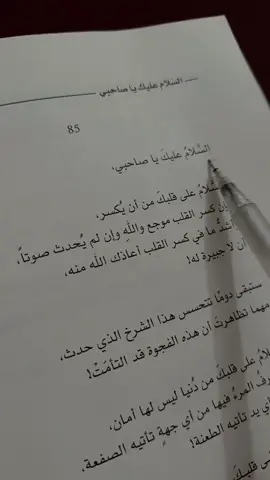 السلام عليك يا صاحبي
85
السَّلامُ عليكَ يا صاحبي،
السلامُ على قلبكَ من أن يُكسر،
إن كسر القلب موجع واللهِ وإن لم يُحدث صوتاً،
أشدُّ ما في كسر القلب أعاذكَ الله منه،
أن لا جبيرة له!
ستبقى دوماً تتحسس هذا الشرخ الذي حدث،
مهما تظاهرتَ أن هذه الفجوة قد التأمَتْ!
على قلبكَ من دُنيا ليس لها أمان،
المرءُ فيها من أي جهةٍ تأتيه الصفعة،
أي يدٍ تأتيه الطعنة!
على قلبكَ